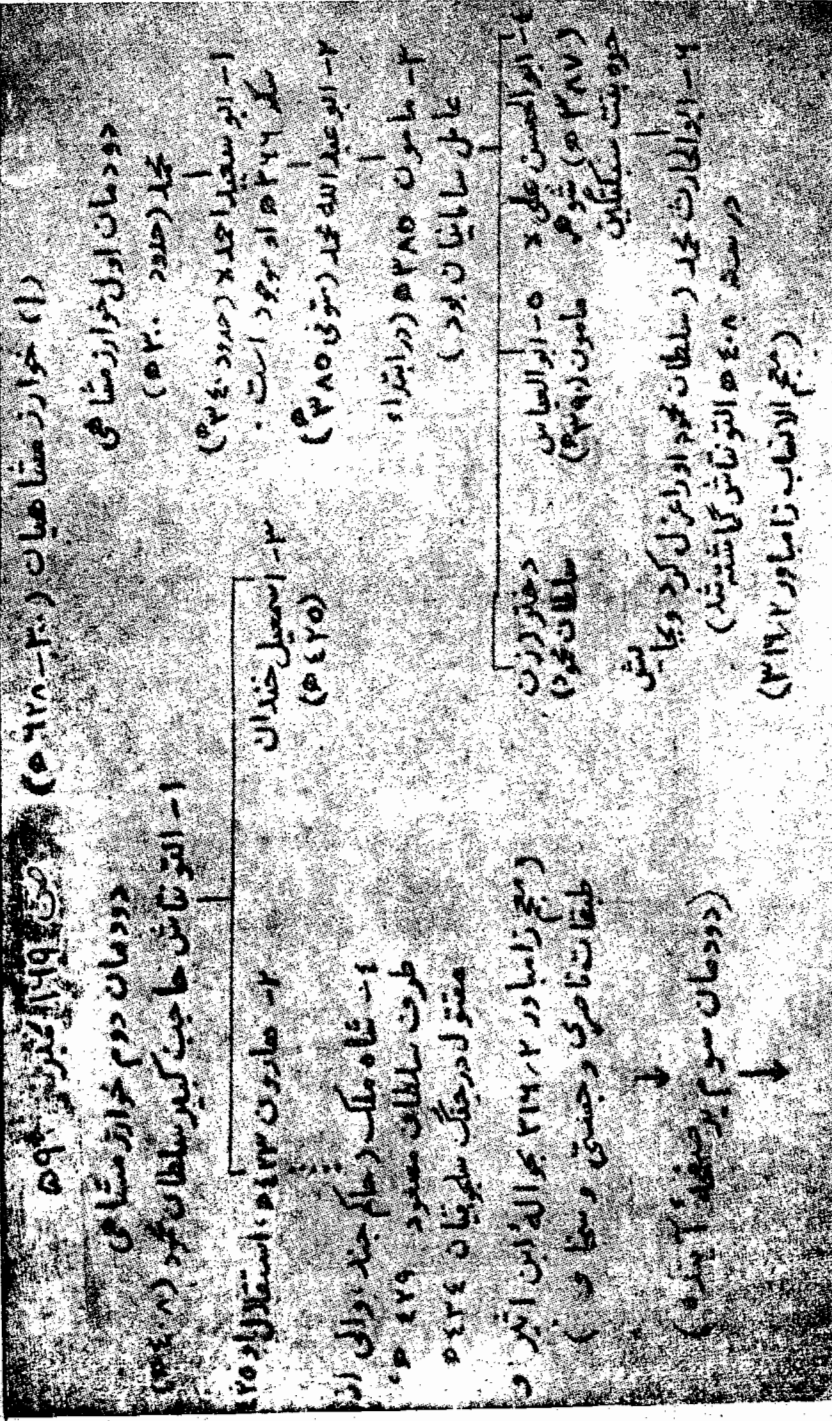 (۱) خوارزمشاهیان (۳۰۰-۶۲۸ ه)
دودمان اول خوارزمشاهی
محمد (حدود ۳۰۰ ه)
۱- ابو سعید احمد (حدود ۳۴۰ ه)
سکه ۳۶۶ ه او موجود است .
۲- ابو عبدالله محمد (متوفی ۳۸۵ ه)
۳- مامون ۳۸۵ ه (در ابتداء
عامل سامانیان بود )
۴- ابوالحسن علی
(۳۸۷ ه) شوهر
حره بنت سبکتگین
۵- ابوالعباس
مامون (۳۹۰ ه)
دختر (زن
سلطان محمود)
۶- ابوالحارث محمد (سلطان محمود او را عزل کرد و بجایش
در سنه ۴۰۸ ه التونتاش گماشته شد)
(معجم الانساب زامباور ۲، ۳۱۶)
دودمان دوم خوارزمشاهی
۱- التونتاش حاجب کبیر سلطان محمود (۴۰۸ ه)
۲- هارون ۴۲۳ ه، استقلال او ۴۲۵
۳- اسمعیل خندان
(۴۲۵ ه)
۴- شاه ملک (حاکم جند، والی از
طرف سلطان مسعود ۴۲۹ ه،
مقتول در جنگ سلجوقیان ۴۳۴ ه
(معجم زامباور ۲، ۳۱۶ بحوالهٔ ابن اثیر و
طبقات ناصری و جمنتی و سخاو )
(دودمان سوم بر صفحهٔ آینده)